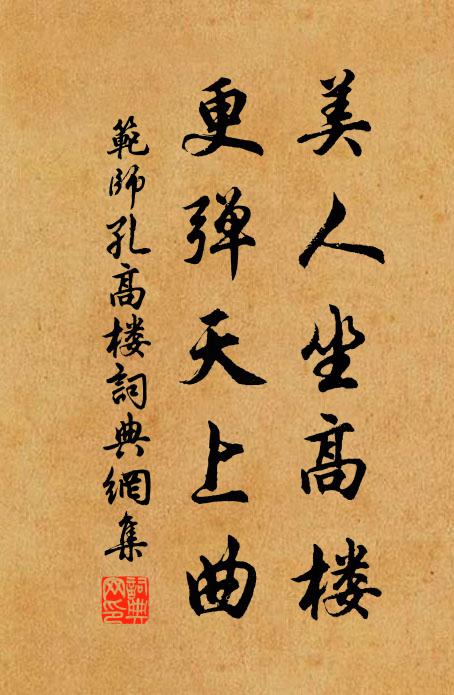 美人坐高楼
更弹天上曲
範師孔高楼詞典網集
詞典
网印